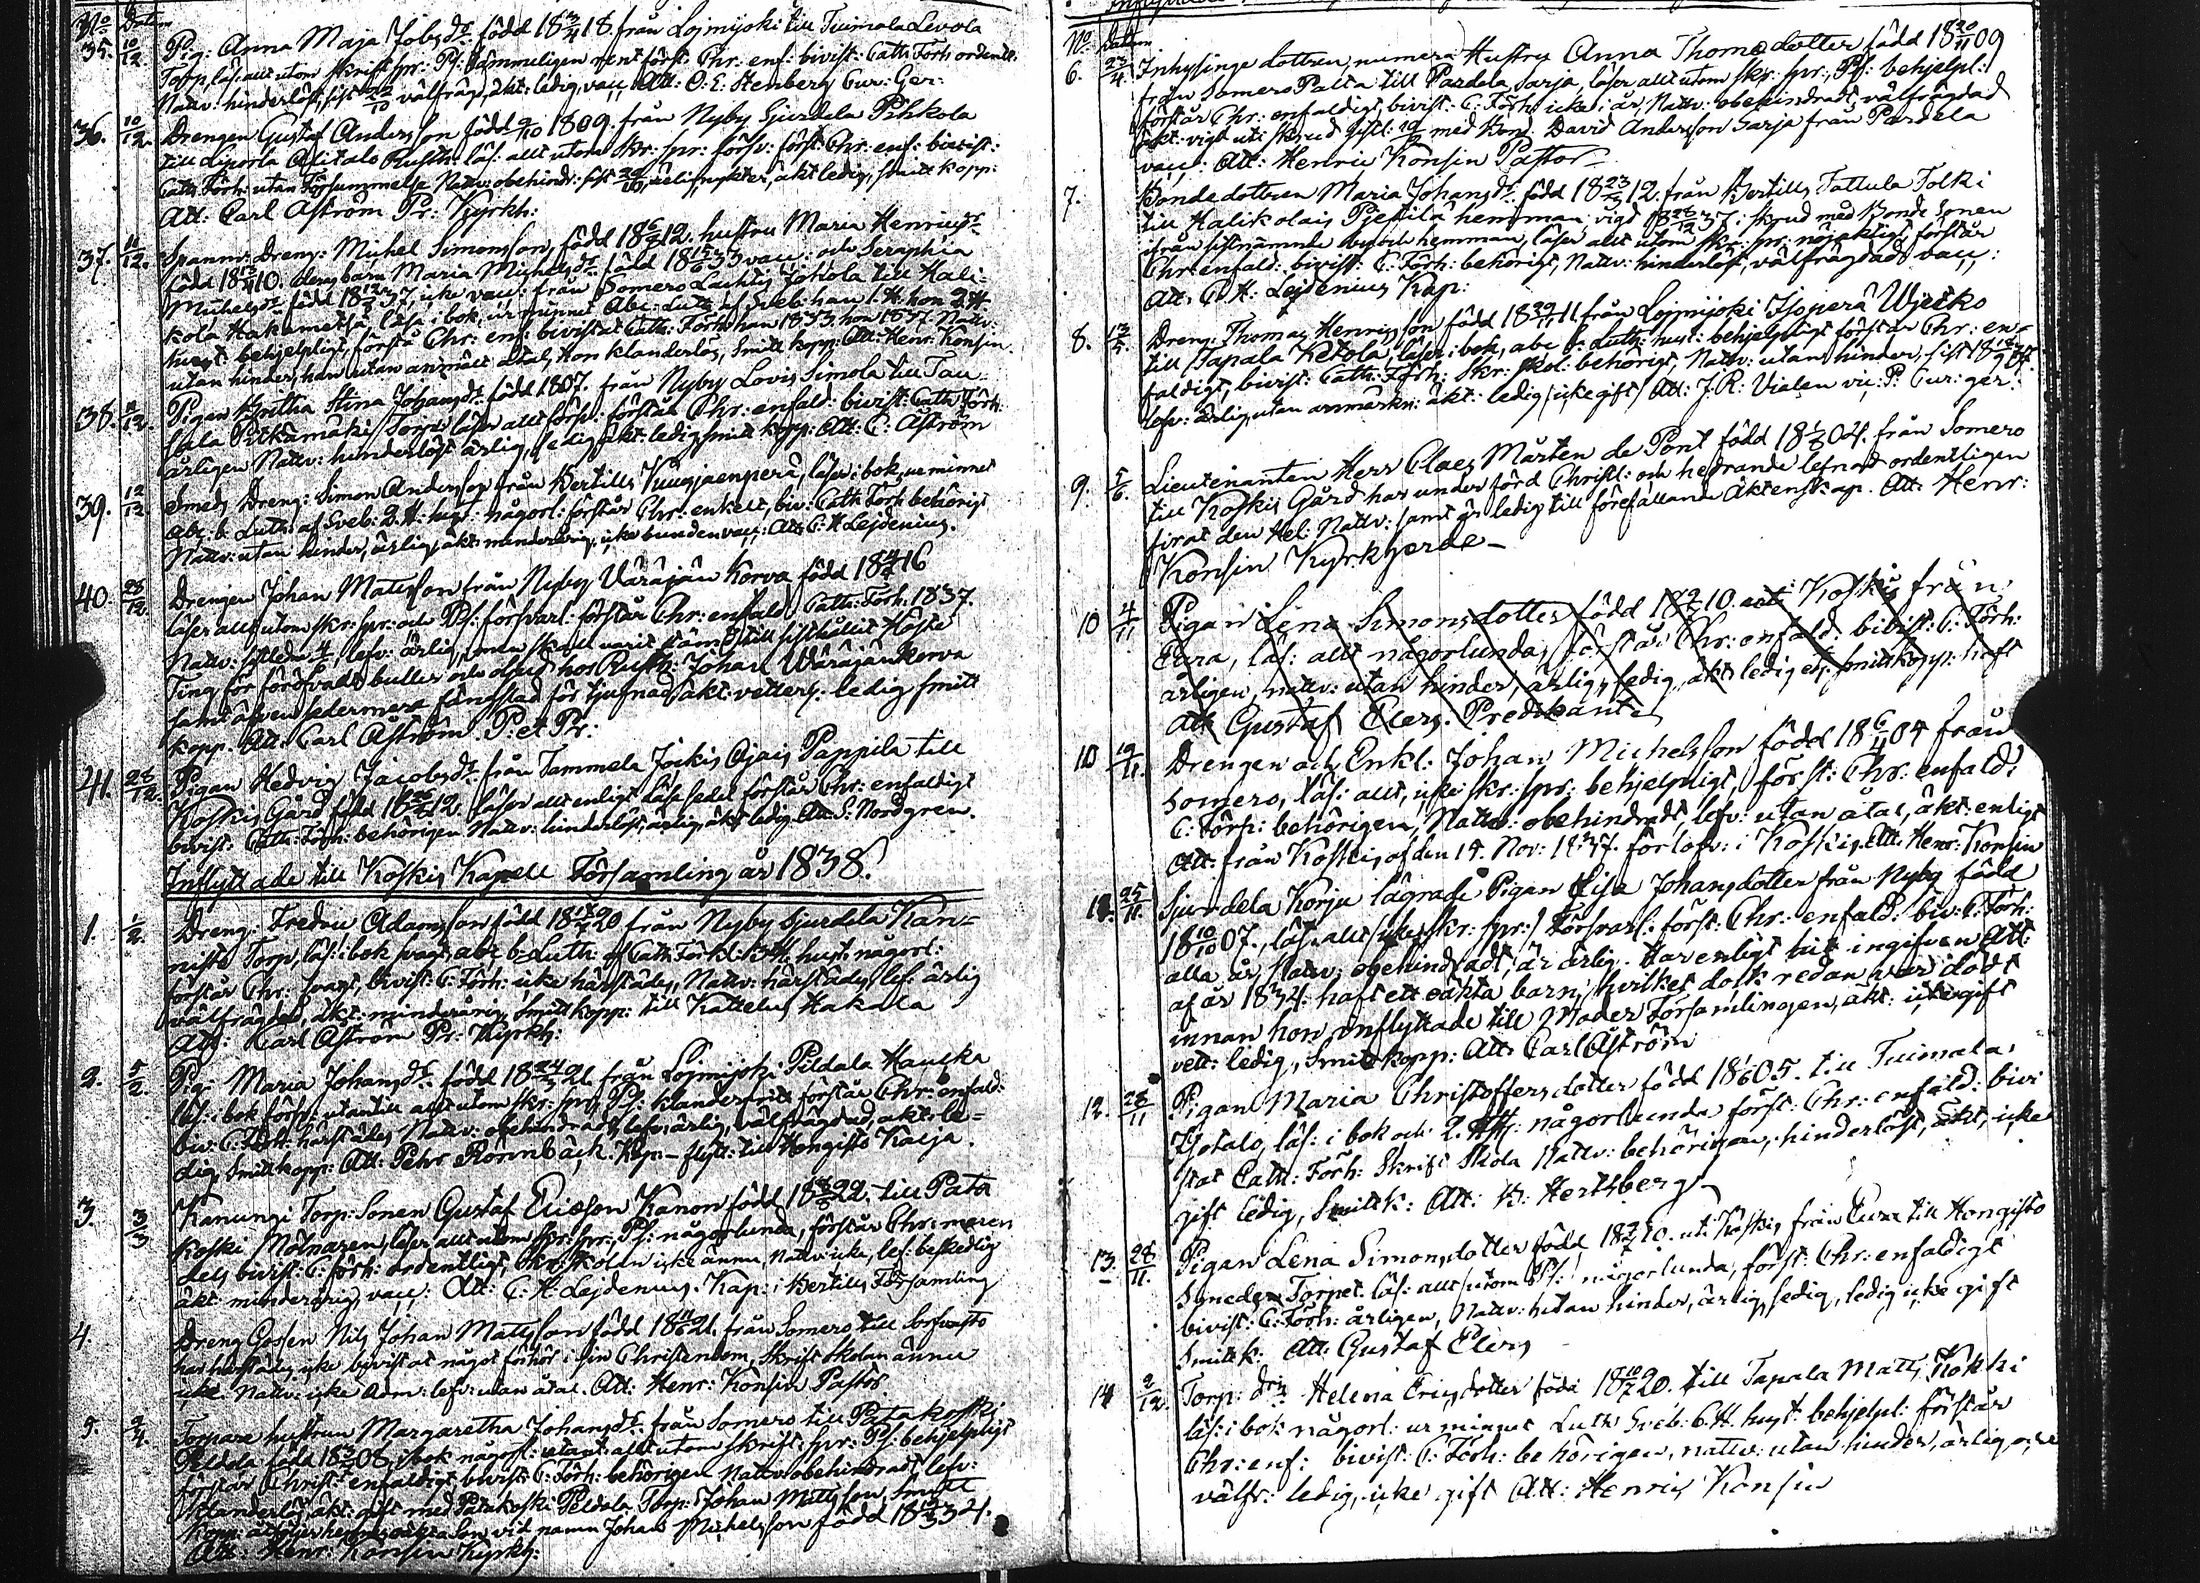 No Datum
35. 10/12. Pig: Anna Maja Jobsdr född 18 3/4 18. från Lojmijoki till Tuimala Levola
Torp, läs: allt utom skrift spr: Ps: förest: Chr: enf: bivist: Cath: Förh: ordentl.
Nattv: hinderlöst, sist välfräg, äkt: ledig, vacc, Att: O. E. Stenberg Cur: Ger:
36. 10/12. Drengen Gustaf Andersson född 1809. från Nyby Sjurdela Pihkola
till Liporla Alitalo Rusth: läs: allt utom skr: spr: försv: först: Chr: enf: bivist:
Cath: Förh: utan Försummelse Nattv: obehindr: sist ärlig, nykter, äkt ledig, smitt kopp:
Att: Carl Åström Pr: Kyrkh:
37. 11/12. Spannm: Dreng: Michel Simonsson, född 18 12. hustru Maria Henricsdr
född 18 10. deras barn Maria Michelsdr född 18 33 vacc: och Seraphia
Michelsdr född 18 37, icke vacc: från Somero Lachtis Johola till Hali-
kola Hakamettä, läsa i bok, ur minnet Abc: Luth: af Sveb: han 1. H. hon 2. H.
hust: behjelpligt, förstå Chr: enf: bivistat Cath: Förh: han 1833. hon 1837. Nattv:
utan hinder, han utan anmält åtal, Hon klanderlös, Smitt kopp: Att: Henr: Konsin.
38. 11/12. Pigan Britha Stina Johansdr född 1807. från Nyby Lovis Simola till Tau-
Pitkämäki Torp läser allt försv: förstår Chr: enfald: bivist: Cath: Förh:
årligen Nattv: hinderlöst ärlig, sedig äkt: ledig smitt kopp: Att: C: Åström
39. 12/12 Smeds Dreng: Simon Andersson från Bertills Vuugjaenperä, läser i bok, ur minnet
Abc. b. Luth: af Sveb: 2. H. hust: någorl: förstår Chr: enkelt, biv: Cath: Förh: behörigt
Nattv: utan hinder, ärlig, äkt: minderårig, icke bunden vacc: Att: C: H. Lejdenius.
40. 28/12. Drengen Johan Matsson från Nyby Väräjän Korva född 18 16
läser allt utom skr: spr: och Ps: försvarl: förstår Chr: enfald: Cath: Förh: 1837.
Nattv: lefv: ärlig, men skall varit stämd till sisthållit Höste
Ting för föröfvadt buller och oljud hos Rusth: Johan Väräjänkorva
samt äfven sedermera fängslad för tjufnad, äkt: vetterl: ledig smitt
kopp. Att: Carl Åström. P: et Pr.
41. 28/12. Pigan Hedvig Jacobsdr från Tammela Jockis Ojais Pappila till
Koskis Gård född 18 12. läser allt enligt läsesedel förstår Chr: enfaldigt
bivist: Cath: Förh: behörigen Nattv: hinderlöst, ärlig, äkt: ledig. Att: S: Nordgren.
Inflyttade till Koskis Kapell Församling år 1838.
1. 1/2. Dreng: Fredric Adamsson född 18 20 från Nyby Sjurdela Kan-
nisto Torp, läs: i bok svagt, abc b: Luth: Cath: Förkl: 3 H. hust: någorl:
förstår Chr: svagt, bivist: C: Förh: icke härstädes, Nattv: härstädes, lef: ärlig
välfrägdad, äkt: minderårig, Smitt kopp: till Kattelus Hakala
Att: Karl Åström Pr: Kyrkh:
2. 5/2. Pig: Maria Johansdr född 18 21 från Lojmijoki Pildala Haucka
läs: i bok försv: utantill allt utom skr: spr: Ps: klanderfritt förstår Chr: enfald:
biv: C: Förh: härstädes Nattv: obehindradt, lefv: ärlig, välfrägdad, äkt: le-
dig, Smitt kopp: Att: Pehr Rönnbäck. Kap. – flytt: till Hongisto Kaija.
3. 3/3 Kanungi Torp: Sonen Gustaf Ericsson Kanon född 18 22. till Pata
koski Mölnaren, läser allt utom skr: spr: Ps: någorlunda, förstår Chr: meren
dels bivist: C: Förh: ordentligt, Skr: Skolan icke ännu, Nattv: icke, lef: beskedlig
äkt: minderårig, vacc: Att: C: H. Lejdenius. Kap: i Bertills Församling
4. Dreng Gossen Nils Johan Mattsson född 18 21. från Somero till Sorfvasto
har härstädes icke bivistat något förhör i sin Christendom, Skrift Skolan ännu
icke. Nattv: icke Adm: lefv: utan åtal. Att: Henr: Konsin Pastor.
5. 2/4. Torpare hustrun Margaretha Johansdr från Somero till Patakoski
Peldda född 18 08, i bok någorl: utant: allt utom skrift: spr: Ps: behjelpligt
förstår Christ: enfaldigt bivist: C: Förh: behörigen Nattv: obehindradt lefv:
Klanderlöst äkt: gift med Patakoski Peldola Torp: Johan Mattsson, Smitt
Kopp: åtföljer hennes oäkta Son vid namn Johan Michelsson född 18 34.
Att: Henr: Konsin Kyrkh:
No. Datum
6. 23/4 Inhysinge dottren, numera Hustru Anna Thomedotter född 18 20/11 09
från Somero Palta till Pardela Sarja, läser allt utom skr: spr: Ps: behjelpl:
förstår Chr: enfaldigt, bivist: C: Förh: icke i år, Nattv: obehindradt, välfrägdad
äkt: vigd uti skrud med Bond: David Andersson Sarja från Pardela
vacc: Att: Henric Konsin Pastor
7. Bondedottren Maria Johansdr född 18 23/3 12. från Bertills Tattula Tolki
till Halikolais Pjetilä hemman, vigd 37 i Skrud med Bonde Sonen
ifrån sistnämnde by och hemman, läser allt utom skr: spr: nöjaktigt, förstår
Chr: enfald: bivist: C: Förh: behörigt, Nattv: hinderlöst, välfrägdad vacc:
Att: C. H: Lejdenius Kap:
8. 13/5. Dreng: Thomas Henricsson född 18 11 från Lojmijoki Isoperä Wjecko
till Tapala Ketola, läser i bok, abc b: Luth: hust: behjelpligt förstår Chr: en-
faldigt, bivist: Cath: Förh: Skr: skol: behörigt, Nattv: utan hinder, sist 18
lefv: ärlig, utan anmärkn: äkt: ledig (icke gift) Att: J. R: Vialen vic: P: Cur: ger:
9. 5/6. Lieutenanten Herr Claes Mårten de Pont född 18 04. från Somero
till Koskis Gård har underförd Christl: och hedrande lefnad ordentligen
firat den Hel: Nattv: samt är ledig till förefallande Äktenskap. Att: Henr:
Konsin Kyrkherde –
10 4/11 Pigan Lena Simonsdotter född 18 2/7 10. uti Koskis från
Eura, läs: allt någorlunda, förstår Chr: enfald: bivist: C: Förh:
årligen, nattv: utan hinder, ärlig, sedig, äkt: ledig, ej smittkopp: haft
Att Gustaf Elers. Predikant
10 19/11. Drengen och Enkl: Johan Michelsson född 18 6/11 04 från
Somero, läs: allt, icke skr: spr: behjelpligt, först: Chr: enfald:
C: Förh: behörigen, Nattv: obehindradt, lefv: utan åtal, äkt: enligt
Att: från Koskis af den 14. Nov: 1837. förlofv: i Koskis. Att: Henr: Konsin
11. 25/11. Sjurdela Korju lägrade Pigan Lisa Johansdotter från Nyby född
18 10/10 07., läs: allt (icke skr: spr:) Försvarl: först: Chr: enfald: biv: C: Förh:
alla år, Nattv: obehindradt, är ärlig. Har enligt hit ingifven Att:
af år 1834. haft ett oäkta barn, hvilket dock redan var dödt
innan hon inflyttade till Moder Församlingen, äkt: icke gift
vett: ledig, Smitt kopp: Att: Carl Åström
12. 28/11 Pigan Maria Christoffersdotter född 18 05. till Tuimala
Isotalo, läs: i bok och 2. H. någorlunda först: Chr: enfald: bivi
stat Cath: Förh: Skrift Skola Nattv: behörigen, hinderlöst, äkt: icke
gift ledig, Smitt k: Att: K: Hertsberg
13. 28/11. Pigan Lena Simonsdotter född 18 2/7 10. uti Koskis från Eura till Hongisto
Smeden Torpet. läs: allt (utom Ps:) någorlunda, först: Chr: enfaldigt
bivist: C: Förh: årligen, Nattv: utan hinder, ärlig, sedig, ledig icke gift
Smitt k: Att: Gustaf Elers
14 9/12. Torp: dr: Helena Ericsdotter född 18 20. till Tapala Matts Kokki
läs: i bok någorl: ur minnet Luth: Sveb: 6. H. hust: behjelpl: förstår
Chr: enf: bivist: C: Förh: behörigen, nattv: utan hinder, ärlig och
välfr: ledig, icke gift Att: Henric Konsin